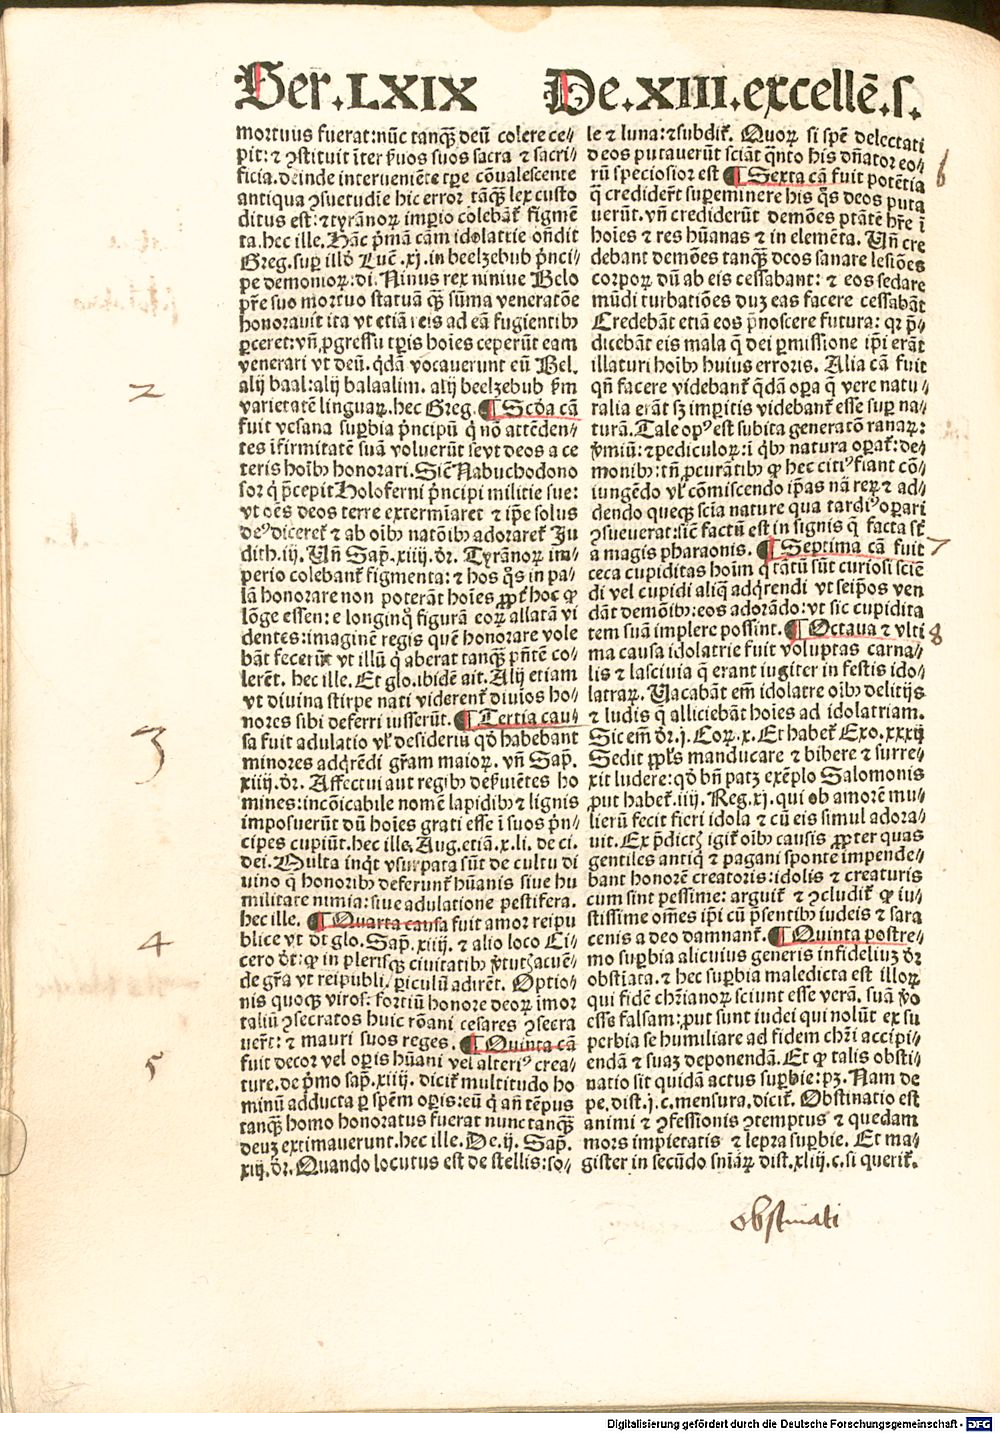 Ser. LXIX De. XIII. excellē. s.
mortuus fuerat: nūc tanqꝫ deū colere ce⸗
pit: ⁊ ꝯstituit īter ẜuos suos sacra ⁊ sacri⸗
ficia. deinde interueniēte tꝑe cōualescente
antiqua ꝯsuetudīe hic error tāqꝫ lex custo
ditus est: ⁊ tyrānoꝝ imꝑio colebāt̄ figmē
ta. hec ille. Hāc pͥmā cām idolatrie on̄dit
Greg. suꝑ illđ Luc̄. xj. in beelzebub pͥnci⸗
pe demonioꝝ: di. Ninus rex niniue Belo
pr̄e suo mortuo statuā qꝫ sūma veneratōe
honorauit ita vt etiā reis ad eā fugientibꝰ
ꝑceret: vn̄ ꝓgressu tꝑis hoīes ceperūt eam
venerari vt deū. qͥdā vocauerunt eū Bel.
alij baal: alij balaalim. alij beelzebub ẜm
varietatē linguaꝝ. hec Greg. ¶ Scđa cā
fuit vesana suꝑbia pͥncipū qͥ nō attēden⸗
tes īfirmitatē suā voluerūt sevt deos a ce
teris hoībꝰ honorari. Sic̄ Nabuchodono
sor qͥ p̄cepit Holoferni pͥncipi militie sue:
vt oēs deos terre extermīaret ⁊ ip̄e solus
deꝰ diceret̄ ⁊ ab oibꝰ natōibꝰ adoraret̄ Ju
dith. iij. Un̄ Sap̄. xiiij. đr. Tyrānoꝝ im⸗
perio colebant̄ figmenta: ⁊ hos qͦs in pa⸗
lā honorare non poterāt hoīes ꝓpt̄ hoc ꝙ
lōge essen: e longinqͦ figurā eoꝝ allatā vi
dentes: imaginē regis quē honorare vole
bāt fecerūt vt illū qͥ aberat tanqꝫ pn̄tē co⸗
lerēt. hec ille. Et glo. ibidē ait. Alij etiam
vt diuina stirpe nati viderent̄ diuīos ho⸗
nores sibi deferri iusserūt. ¶ Tertia cau⸗
sa fuit adulatio vł desideriū qđ habebant
minores adqͥrēdi gr̄am maioꝝ. vn̄ Sap̄.
xiiij. đr. Affectui aut regibꝰ deẜuiētes ho
mines: incōicabile nomē lapidibꝰ ⁊ lignis
imposuerūt dū hoīes grati esse ī suos pͥn⸗
cipes cupiūt. hec ille. Aug. etiā. x. li. de ci.
dei. Multa inqͥt vsurpata sūt de cultu di
uino q̄ honoribꝰ deferunt̄ hūanis siue hu
militate nimia: siue adulatione pestifera.
hec ille. ¶ Quarta causa fuit amor reipu
blice vt đt glo. Sap̄. xiiij. ⁊ alio loco Ci⸗
cero đt: ꝙ in plerisqꝫ ciuitatibꝰ
de gr̄a vt reipubli. ꝑiculū adirēt. Optio⸗
nis quoqꝫ viros. fortiū honore deoꝝ imor
taliū ꝯsecratos huic rōani cesares ꝯsecra
uer̄t: ⁊ mauri suos reges. ¶ Quinta cā
fuit decor vel oꝑis hūani vel alteriꝰ crea⸗
ture. de pͥmo sap̄. xiiij. dicit̄ multitudo ho
minū adducta ꝑ spēm oꝑis: eū qͥ an̄ tēpus
tanqꝫ homo honoratus fuerat nunc tanqꝫ
deuꝫ extimauerunt. hec ille. De. ij. Sap̄.
xiij. đr. Quando locutus est de stellis: so⸗
le ⁊ luna: ⁊ subdit̄. Quoꝝ si spē delectati
deos putauerūt sciāt qͣnto his dn̄ator eo⸗
rū speciosior est ¶ Sexta cā fuit potētia
q̄ crediđert suꝑeminere his qͦs deos puta
uerūt. vn̄ crediderūt demōes ptātē hr̄e ī
hoīes ⁊ res hūanas ⁊ in elemēta. Un̄ cre
debant demōes tanqꝫ deos sanare lesiōes
corpoꝝ dū ab eis cessabant: ⁊ eos sedare
mūdi turbatiōes duꝫ eas facere cessabāt
Credebāt etiā eos p̄noscere futura: qꝛ p̄⸗
dicebāt eis mala q̄ dei ꝑmissione ip̄i erāt
illaturi hoībꝰ huius erroris. Alia cā fuit
qn̄ facere videbant̄ qͤdā oꝑa q̄ vere natu⸗
ralia erāt sꝫ imꝑitis videbant̄ esse suꝑ na⸗
turā. Tale opꝰ est subita generatō ranaꝝ:
v̓miū: ⁊ pediculoꝝ: ī qͥbꝰ natura oꝑat̄: de⸗
monibꝰ: tn̄ ꝓcurātibꝰ ꝙ hec citiꝰ fiant cō⸗
iungēdo vł cōmiscendo ip̄as nā reꝝ ⁊ ad⸗
dendo queqꝫ scīa nature qua tardiꝰ oꝑari
ꝯsueuerat: sic̄ factū est in signis q̄ facta st̄
a magis pharaonis. ¶ Septima cā fuit
ceca cupiditas hoīm qͥ tātū sūt curiosi sciē
di vel cupidi aliqͣ adqͥrendi vt seip̄os ven
dāt demōibꝰ: eos adorādo: vt sic cupidita
tem suā implere possint. ¶ Octaua ⁊ vlti
ma causa idolatrie fuit voluptas carna⸗
lis ⁊ lasciuia q̄ erant iugiter in festis ido⸗
latraꝝ. Uacabāt em̄ idolatre oībꝰ delitijs
⁊ ludis q̄ alliciebāt hoīes ad idolatriam.
Sic em̄ đr. j. Coꝝ. x. Et habet̄ Exo. xxxij
Sedit ppl̄s manducare ⁊ bibere ⁊ surre⸗
xit ludere: qđ bn̄ patꝫ exēplo Salomonis
ꝓut habet̄. iij. Reg. xj. qui ob amorē mu⸗
lierū fecit fieri idola ⁊ cū eis simul adora⸗
uit. Ex p̄dictꝭ igit̄ oībꝰ causis ꝓpter quas
gentiles antiqͥ ⁊ pagani sponte impende⸗
bant honorē creatoris: idolis ⁊ creaturis
cum sint pessime: arguit̄ ⁊ ꝯcludit̄ ꝙ iu⸗
stissime om̄es ip̄i cū p̄sentibꝰ iudeis ⁊ sara
cenis a deo damnant̄. ¶ Quinta postre⸗
mo suꝑbia alicuius generis infideliuꝫ đr
obstīata. ⁊ hec suꝑbia maledicta est illoꝝ
qui fidē chr̄ianoꝝ sciunt esse verā. suā v̓o
esse falsam: ꝓut sunt iudei qui nolūt ex su
perbia se humiliare ad fidem chr̄i accipi⸗
endā ⁊ suaꝫ deponendā. Et ꝙ talis obsti⸗
natio sit quidā actus suꝑbie: pꝫ. Nam de
pe. dist. j. c. mensura. dicit̄. Obstinatio est
animi ⁊ ꝯfessionis ꝯtemptus ⁊ quedam
mors impietatis ⁊ lepra suꝑbie. Et ma⸗
gister in secūdo sn̄iaꝝ dist. xliij. c. si querit̄.
2
3
4
5
6
7
8
obstinati
Digitalisierung gefördert durch die Deutsche Forschungsgemeinschaft - DFG